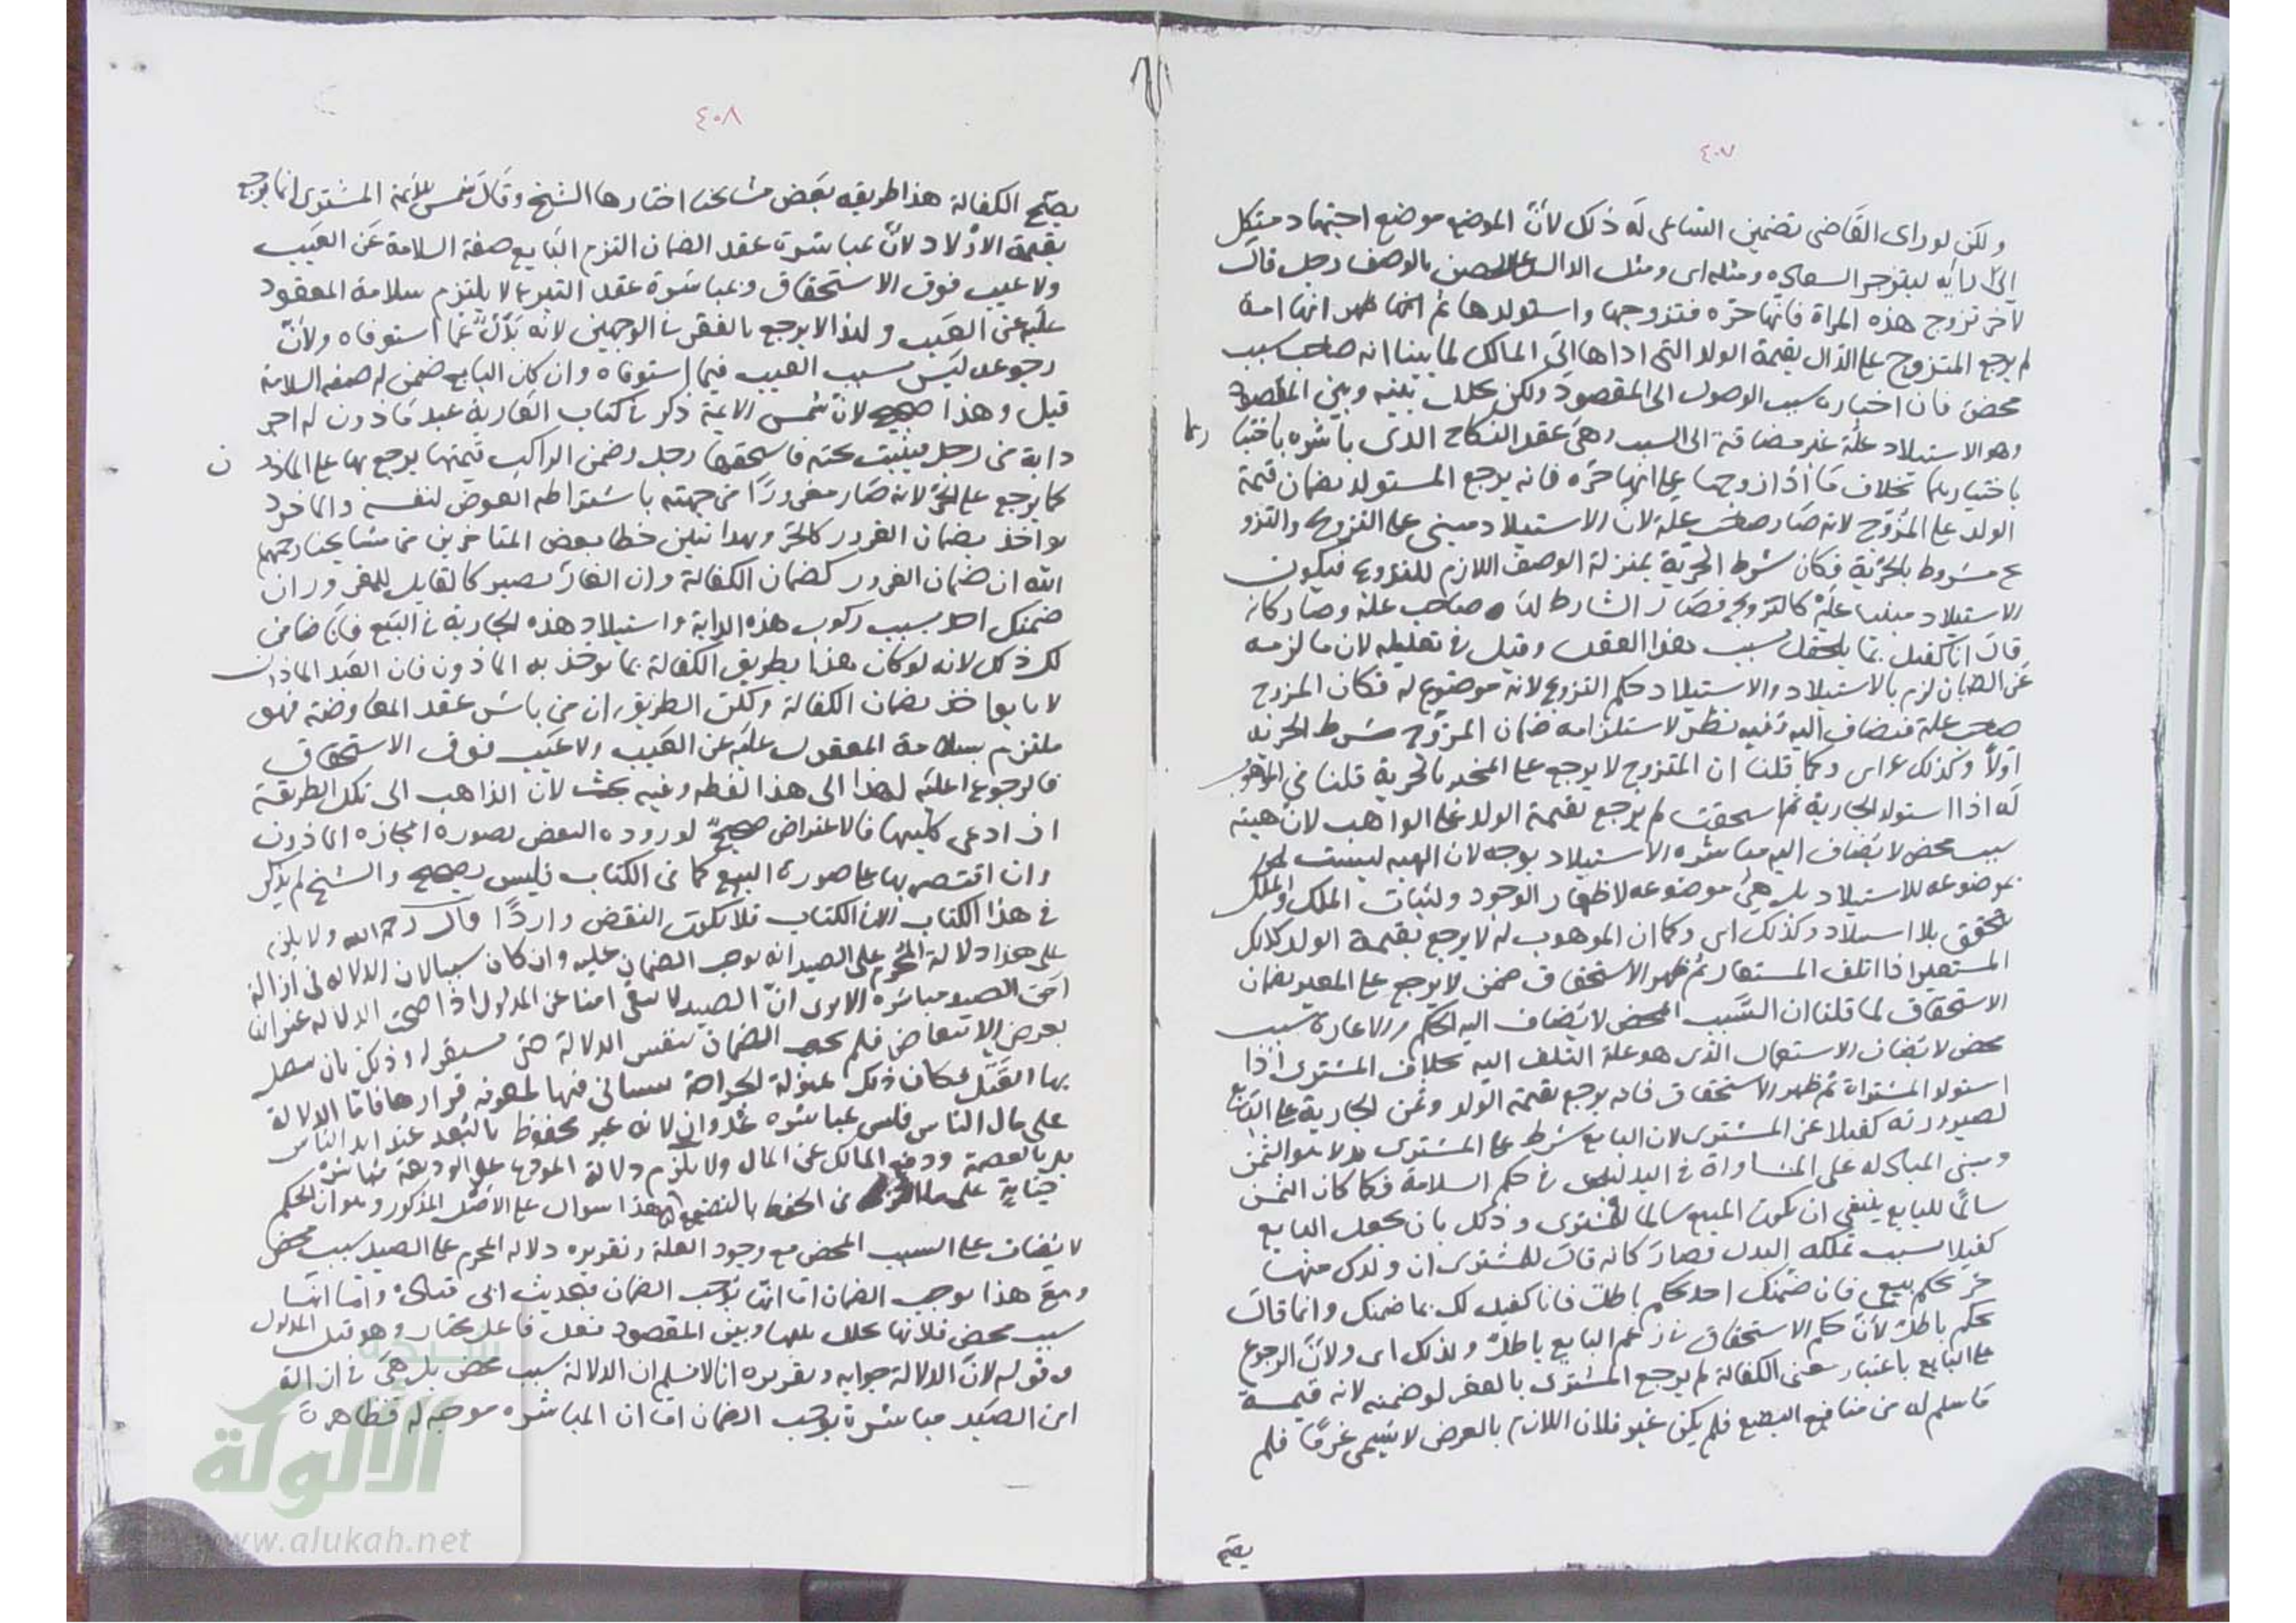 ٤٠٧
ولكن لو راى القاضى تضمين الساعى له ذلك لانّ الموضع موضع اجتهاد
الى رايه لينزجر السعاة ومثله اى ومثل الدال على الحصن بالوصف رجل قال
لاخر تزوج هذه المراة فانها حرة فتزوجها واستولدها ثم ظهر انها امة
لم يرجع المتزوج على الدال بقيمة الولد التى اداها الى المالك لما بينا انه صاحب سبب
محض فان اخباره سبب الوصول الى المقصود ولكن تخلل بينه وبين المقصود
وهو الاستيلاد علة غير مضافة الى السبب وهى عقد النكاح الذى باشره باختيا
باختيارهما بخلاف ما اذا زوجها على انها حرة فانه يرجع المستولد بضمان قيمة
الولد على المزوّج لانه صار صاحب علة لان الاستيلاد مبنى على التزوج والتزو
ج مشروط بالحرية فكان شرط الحرية بمنزلة الوصف اللازم للتزوج فيكون
الاستيلاد مبنيا عليه كالتزوج فصار الشارط صاحب علة وصار كانه
قال انا كفيل بما يلحقك بسبب هذا العقد وقيل فى تعليله لان ما لزمه
من الضمان لزم بالاستيلاد والاستيلاد حكم التزوج لانه موضوع له فكان المزوج
صاحب علة فيضاف اليه وفيه نظر لاستلزامه ضمان المزوّج شرط الحرية
اولاً وكذلك اى وكما قلنا ان المتزوج لا يرجع على المخبر بالحرية قلنا فى الموهوب
له اذا استولد الجارية ثم استحقت لم يرجع بقيمة الولد على الواهب لان هبته
سبب محض لا يضاف اليه مباشرة الاستيلاد بوجه لان الهبة ليست
بموضوعة للاستيلاد بل هى موضوعة لاظهار الجود ولاثبات الملك والملك
يتحقق بلا استيلاد وكذلك اى وكما ان الموهوب له لا يرجع بقيمة الولد كذلك
المستعير اذا اتلف المستعار ثم ظهر الاستحقاق ضمن لا يرجع على المعير بضمان
الاستحقاق لما قلنا ان السبب المحض لا يضاف اليه الحكم والاعارة سبب
محض لا يضاف الاستعمال الذى هو علة التلف اليه بخلاف المشترى اذا
استولد المشتراة ثم ظهر الاستحقاق فانه يرجع بقيمة الولد وثمن الجارية على البايع
لصيرورته كفيلا عن المشترى لان البايع شرط على المشترى الثمن
ومبنى المبادلة على المساواة فى البدلين فى حكم السلامة فكما كان الثمن
سالمًا للبايع ينبغى ان يكون المبيع سالما للمشترى وذلك بان يجعل البايع
كفيلا بسبب تملكه البدل فصار كانه قال للمشترى ان ولدك منها
حر بحكم بيعى فان ضمنك احد بحكم باطل فانا كفيل لك بما ضمنك وانما قال
بحكم باطل لان حكم الاستحقاق فى زعم البايع باطل ولذلك اى ولانّ الرجوع
على البايع باعتبار معنى الكفالة لم يرجع المشترى بالعقر لو ضمنه لانه قيمة
ما سلم له من منافع البضع فلم يكن اللازم بالعوض لا يسمى غرمًا فلم
يصح
٤٠٨
يصح الكفالة هذا طريقه بعض مشايخنا اختارها الشيخ وقال شمس الائمة المشترى انما يرجع
بقيمة الاولاد لانّ بمباشرة عقد الضمان التزم البايع صفة السلامة عن العيب
ولا عيب فوق الاستحقاق وبمباشرة عقد التبرع لا يلتزم سلامة المعقود
عليه عن العيب ولهذا لا يرجع بالعقر فى الوجهين لانه بدل عما استوفاه ولانّ
رجوعه ليس بسبب العيب فيما استوفاه وان كان البايع ضمن له صفة السلامة
قيل وهذا صحيح لان شمس الائمة ذكر فى كتاب العارية عبد ماذون له اجر
دابة من رجل فاستحقها رجل وضمن الراكب قيمتها يرجع بها على الماذون
كما يرجع على الحر لانه صار مغرورًا من جهته باشتراطه العوض لنفسه والماذون
يواخذ بضمان الغرور كالحر وبهذا تبين خطا بعض المتاخرين من مشايخنا رحمهم
الله ان ضمان الغرور كضمان الكفالة وان الغارّ يصير كالقايل للمغرور ان
ضمنك احد بسبب ركوب هذه الدابة واستيلاد هذه الجارية فى البيع فانا ضامن
لك ذلك لانه لو كان هذا بطريق الكفالة لما يوخذ به الماذون فان العبد الماذون
لا يواخذ بضمان الكفالة ولكن الطريق ان من باشر عقد المعاوضة فهو
ملتزم بسلامة المعقود عليه عن العيب ولا عيب فوق الاستحقاق
فالرجوع عليه لهذا الى هذا لفظه وفيه بحث لان الذاهب الى تلك الطريقة
ان ادعى كليتها فالاعتراض صحيح لورود النقض بصورة اجازة الماذون
وان اقتصر بها على صورة البيع كما فى الكتاب فليس بصحيح والشيخ لم يذكر
فى هذا الكتاب الا فى الكتاب فلا يكون النقض واردًا قال رحمه الله ولا يلزم
على هذا دلالة المحرم على الصيد انه يوجب الضمان عليه وان كان سببا لان الدلالة فى ازالة
امن الصيد مباشرة الا يرى انّ الصيد لا يبقى امنا عن المدلول اذا صحت الدلالة غير انها
بعرض الانتقاض فلم يجب الضمان بنفس الدلالة حتى يستقر وذلك بان يتصل
بها القتل فكان ذلك بمنزلة الجراحة يستانى فيها لمعرفة قرارها فاما الدلالة
على مال الناس فليس بمباشرة عدوان لانه غير محفوظ بالبعد عن ايدى الناس
بل بالعصمة ودفع المالك عن المال ولا يلزم دلالة المودع على الوديعة مباشرة
جناية على ما التزم من الحفظ بالتضييع هذا سوال على الاصل المذكور وهو ان الحكم
لا يضاف على السبب المحض مع وجود العلة وتقريره دلالة المحرم على الصيد سبب محض
ومع هذا يوجب الضمان اما انها توجب الضمان فلحديث ابى قتادة واما انها
سبب محض فلانها تخلل بينها وبين المقصود فعل فاعل مختار وهو قتل المدلول
وقوله لان الدلالة جوابه وتقريره انا لا نسلم ان الدلالة سبب محض بل هى فى ازالة
امن الصيد مباشرة توجب الضمان اما ان المباشرة موجبة له فظاهرة
الألوكة
www.alukah.net